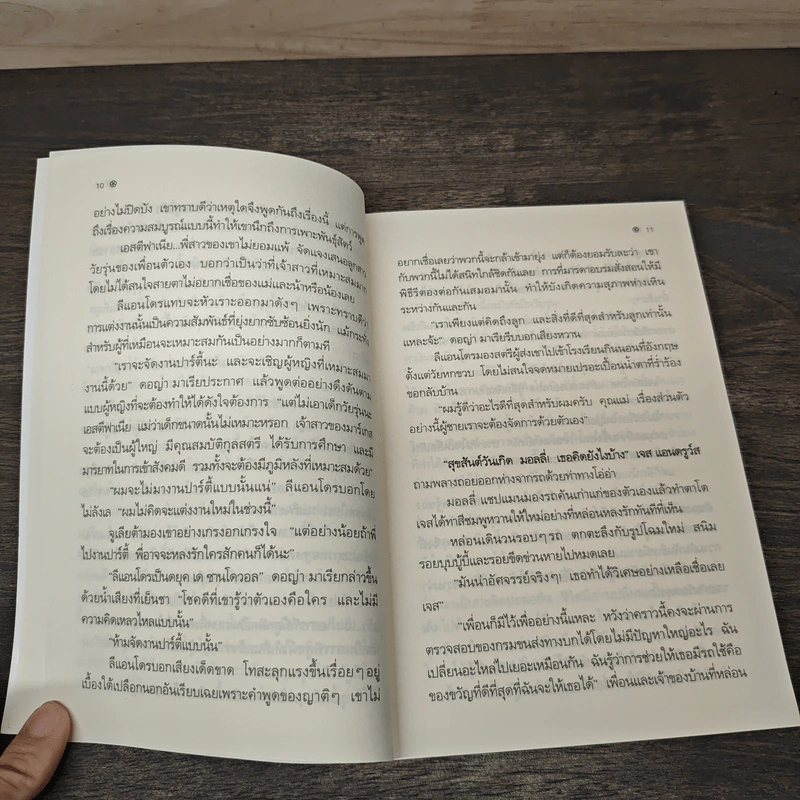 10
อย่างไม่ปิดบัง เขาทราบดีว่าเหตุใดจึงพูดกันถึงเรื่องนี้ แต่การพูด
ถึงเรื่องความสมบูรณ์แบบนี้ทำให้เขานึกถึงการเพาะพันธุ์สัตว์
เอสตีฟาเนีย...พี่สาวของเขาไม่ยอมแพ้ จัดแจงเสนอลูกสาว
วัยรุ่นของเพื่อนตัวเอง บอกว่าเป็นว่าที่เจ้าสาวที่เหมาะสมมาก
โดยไม่ได้สนใจสายตาไม่อยากเชื่อของแม่และน้าหรือน้องเลย
ลีแอนโดรแทบจะหัวเราะออกมาดังๆ เพราะทราบดีว่า
การแต่งงานนั้นเป็นความสัมพันธ์ที่ยุ่งยากซับซ้อนยิ่งนัก แม้กระทั่ง
สำหรับผู้ที่เหมือนจะเหมาะสมกันเป็นอย่างมากก็ตามที
"เราจะจัดงานปาร์ตี้นะ และจะเชิญผู้หญิงที่เหมาะสมมา
งานนี้ด้วย" ดอญ่า มาเรียประกาศ แล้วพูดต่ออย่างดึงดันตาม
แบบผู้หญิงที่จะต้องทำให้ได้ดังใจต้องการ "แต่ไม่เอาเด็กวัยรุ่นนะ
เอสตีฟาเนีย แม่ว่าเด็กขนาดนั้นไม่เหมาะหรอก เจ้าสาวของมาร์เกส
จะต้องเป็นผู้ใหญ่ มีคุณสมบัติกุลสตรี ได้รับการศึกษา และมี
มารยาทในการเข้าสังคมดี รวมทั้งจะต้องมีภูมิหลังที่เหมาะสมด้วย"
"ผมจะไม่มางานปาร์ตี้แบบนั้นแน่" ลีแอนโดรบอกโดย
ไม่ลังเล "ผมไม่คิดจะแต่งงานใหม่ในช่วงนี้"
จูเลียต้ามองเขาอย่างเกรงอกเกรงใจ "แต่อย่างน้อยถ้าพี่
ไปงานปาร์ตี้ พี่อาจจะหลงรักใครสักคนก็ได้นะ"
"ลีแอนโดรเป็นดยุค เด ซานโดวอล" ดอญ่า มาเรียกล่าวขึ้น
ด้วยน้ำเสียงที่เย็นชา "โชคดีที่เขารู้ว่าตัวเองคือใคร และไม่มี
ความคิดเหลวไหลแบบนั้น"
"ห้ามจัดงานปาร์ตี้แบบนั้น"
ลีแอนโดรบอกเสียงเด็ดขาด โทสะลุกแรงขึ้นเรื่อยๆ อยู่
เบื้องใต้เปลือกนอกอันเรียบเฉยเพราะคำพูดของญาติๆ เขาไม่
11
อยากเชื่อเลยว่าพวกนี้จะกล้าเข้ามายุ่ง แต่ก็ต้องยอมรับละว่า เขา
กับพวกนี้ไม่ได้สนิทใกล้ชิดกันเลย การที่มารดาอบรมสั่งสอนให้มี
พิธีรีตองต่อกันเสมอมานั้น ทำให้บังเกิดความสุภาพห่างเหิน
ระหว่างกันและกัน
"เราเพียงแต่คิดถึงลูก และสิ่งที่ดีที่สุดสำหรับลูกเท่านั้น
แหละจ้ะ" ดอญ่า มาเรียรีบบอกเสียงหวาน
ลีแอนโดรมองสตรีผู้ส่งเขาไปเข้าโรงเรียนกินนอนที่อังกฤษ
ตั้งแต่วัยหกขวบ โดยไม่สนใจจดหมายเปรอะเปื้อนน้ำตาที่ร่ำร้อง
ขอกลับบ้าน
"ผมรู้ดีว่าอะไรดีที่สุดสำหรับผมครับ คุณแม่ เรื่องส่วนตัว
อย่างนี้ผู้ชายเราจะต้องจัดการด้วยตัวเอง"
"สุขสันต์วันเกิด มอลลี่! เธอคิดยังไงบ้าง" เจส แอนดรูว์ส
ถามพลางถอยออกห่างจากรถด้วยท่าทางโอ่อ่า
มอลลี่ แชปแมนมองรถคันเก่าแก่ของตัวเองแล้วทำตาโต
เจสได้ทาสีชมพูหวานให้ใหม่อย่างที่หล่อนหลงรักทันทีที่เห็น
หล่อนเดินวนรอบๆ รถ ตกตะลึงกับรูปโฉมใหม่ สนิม
รอยบุบบู้บี้และรอยขีดข่วนหายไปหมดเลย
"มันน่าอัศจรรย์จริงๆ! เธอทำได้วิเศษอย่างเหลือเชื่อเลย
เจส"
"เพื่อนก็มีไว้เพื่ออย่างนี้แหละ หวังว่าคราวนี้คงจะผ่านการ
ตรวจสอบของกรมขนส่งทางบกได้โดยไม่มีปัญหาใหญ่อะไร ฉัน
เปลี่ยนอะไหล่ไปเยอะเหมือนกัน ฉันรู้ว่าการช่วยให้เธอมีรถใช้คือ
ของขวัญที่ดีที่สุดที่ฉันจะให้เธอได้" เพื่อนและเจ้าของบ้านที่หล่อน